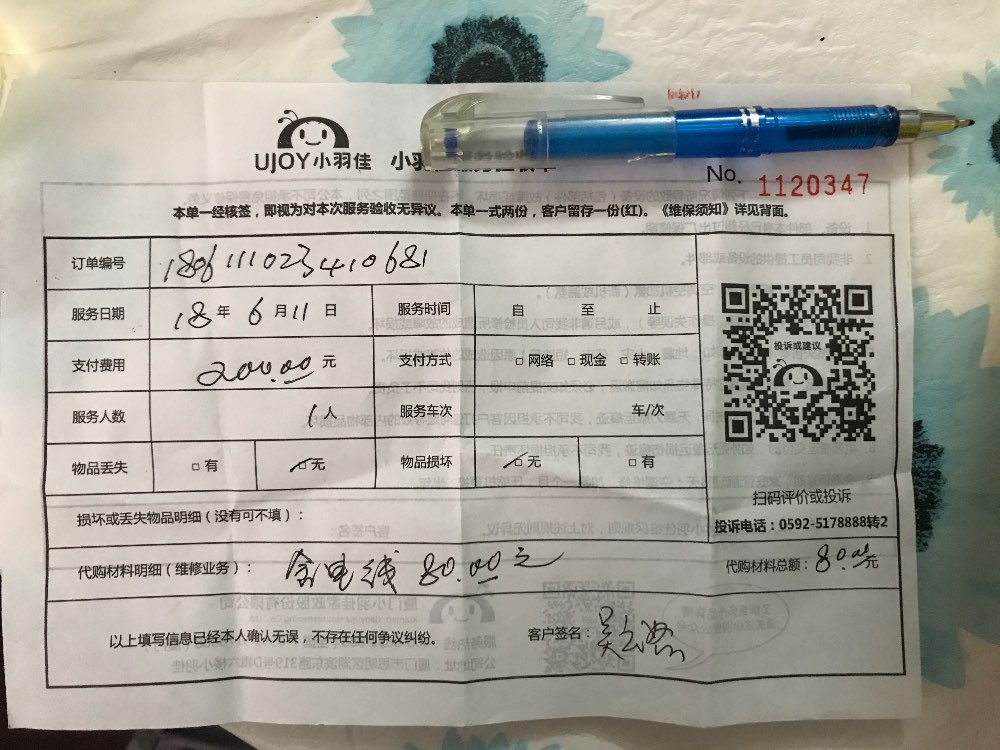 UJOY小羽佳 小羽
No. 1120347
本单一经核签，即视为对本次服务验收无异议。本单一式两份，客户留存一份(红)。《维保须知》详见背面。
订单编号 180611023410681
服务日期 18 年 6 月 11 日 服务时间 自 至 止
支付费用 200.00 元 支付方式 □ 网络 □ 现金 □ 转账
服务人数 1 人 服务车次 车/次
物品丢失 □ 有 ☑ 无 物品损坏 ☑ 无 □ 有
投诉或建议
扫码评价或投诉
投诉电话：0592-5178888转2
损坏或丢失物品明细（没有可不填）：
代购材料明细（维修业务）： 含电线 80.00元
代购材料总额：80.00元
以上填写信息已经本人确认无误，不存在任何争议纠纷。
客户签名：